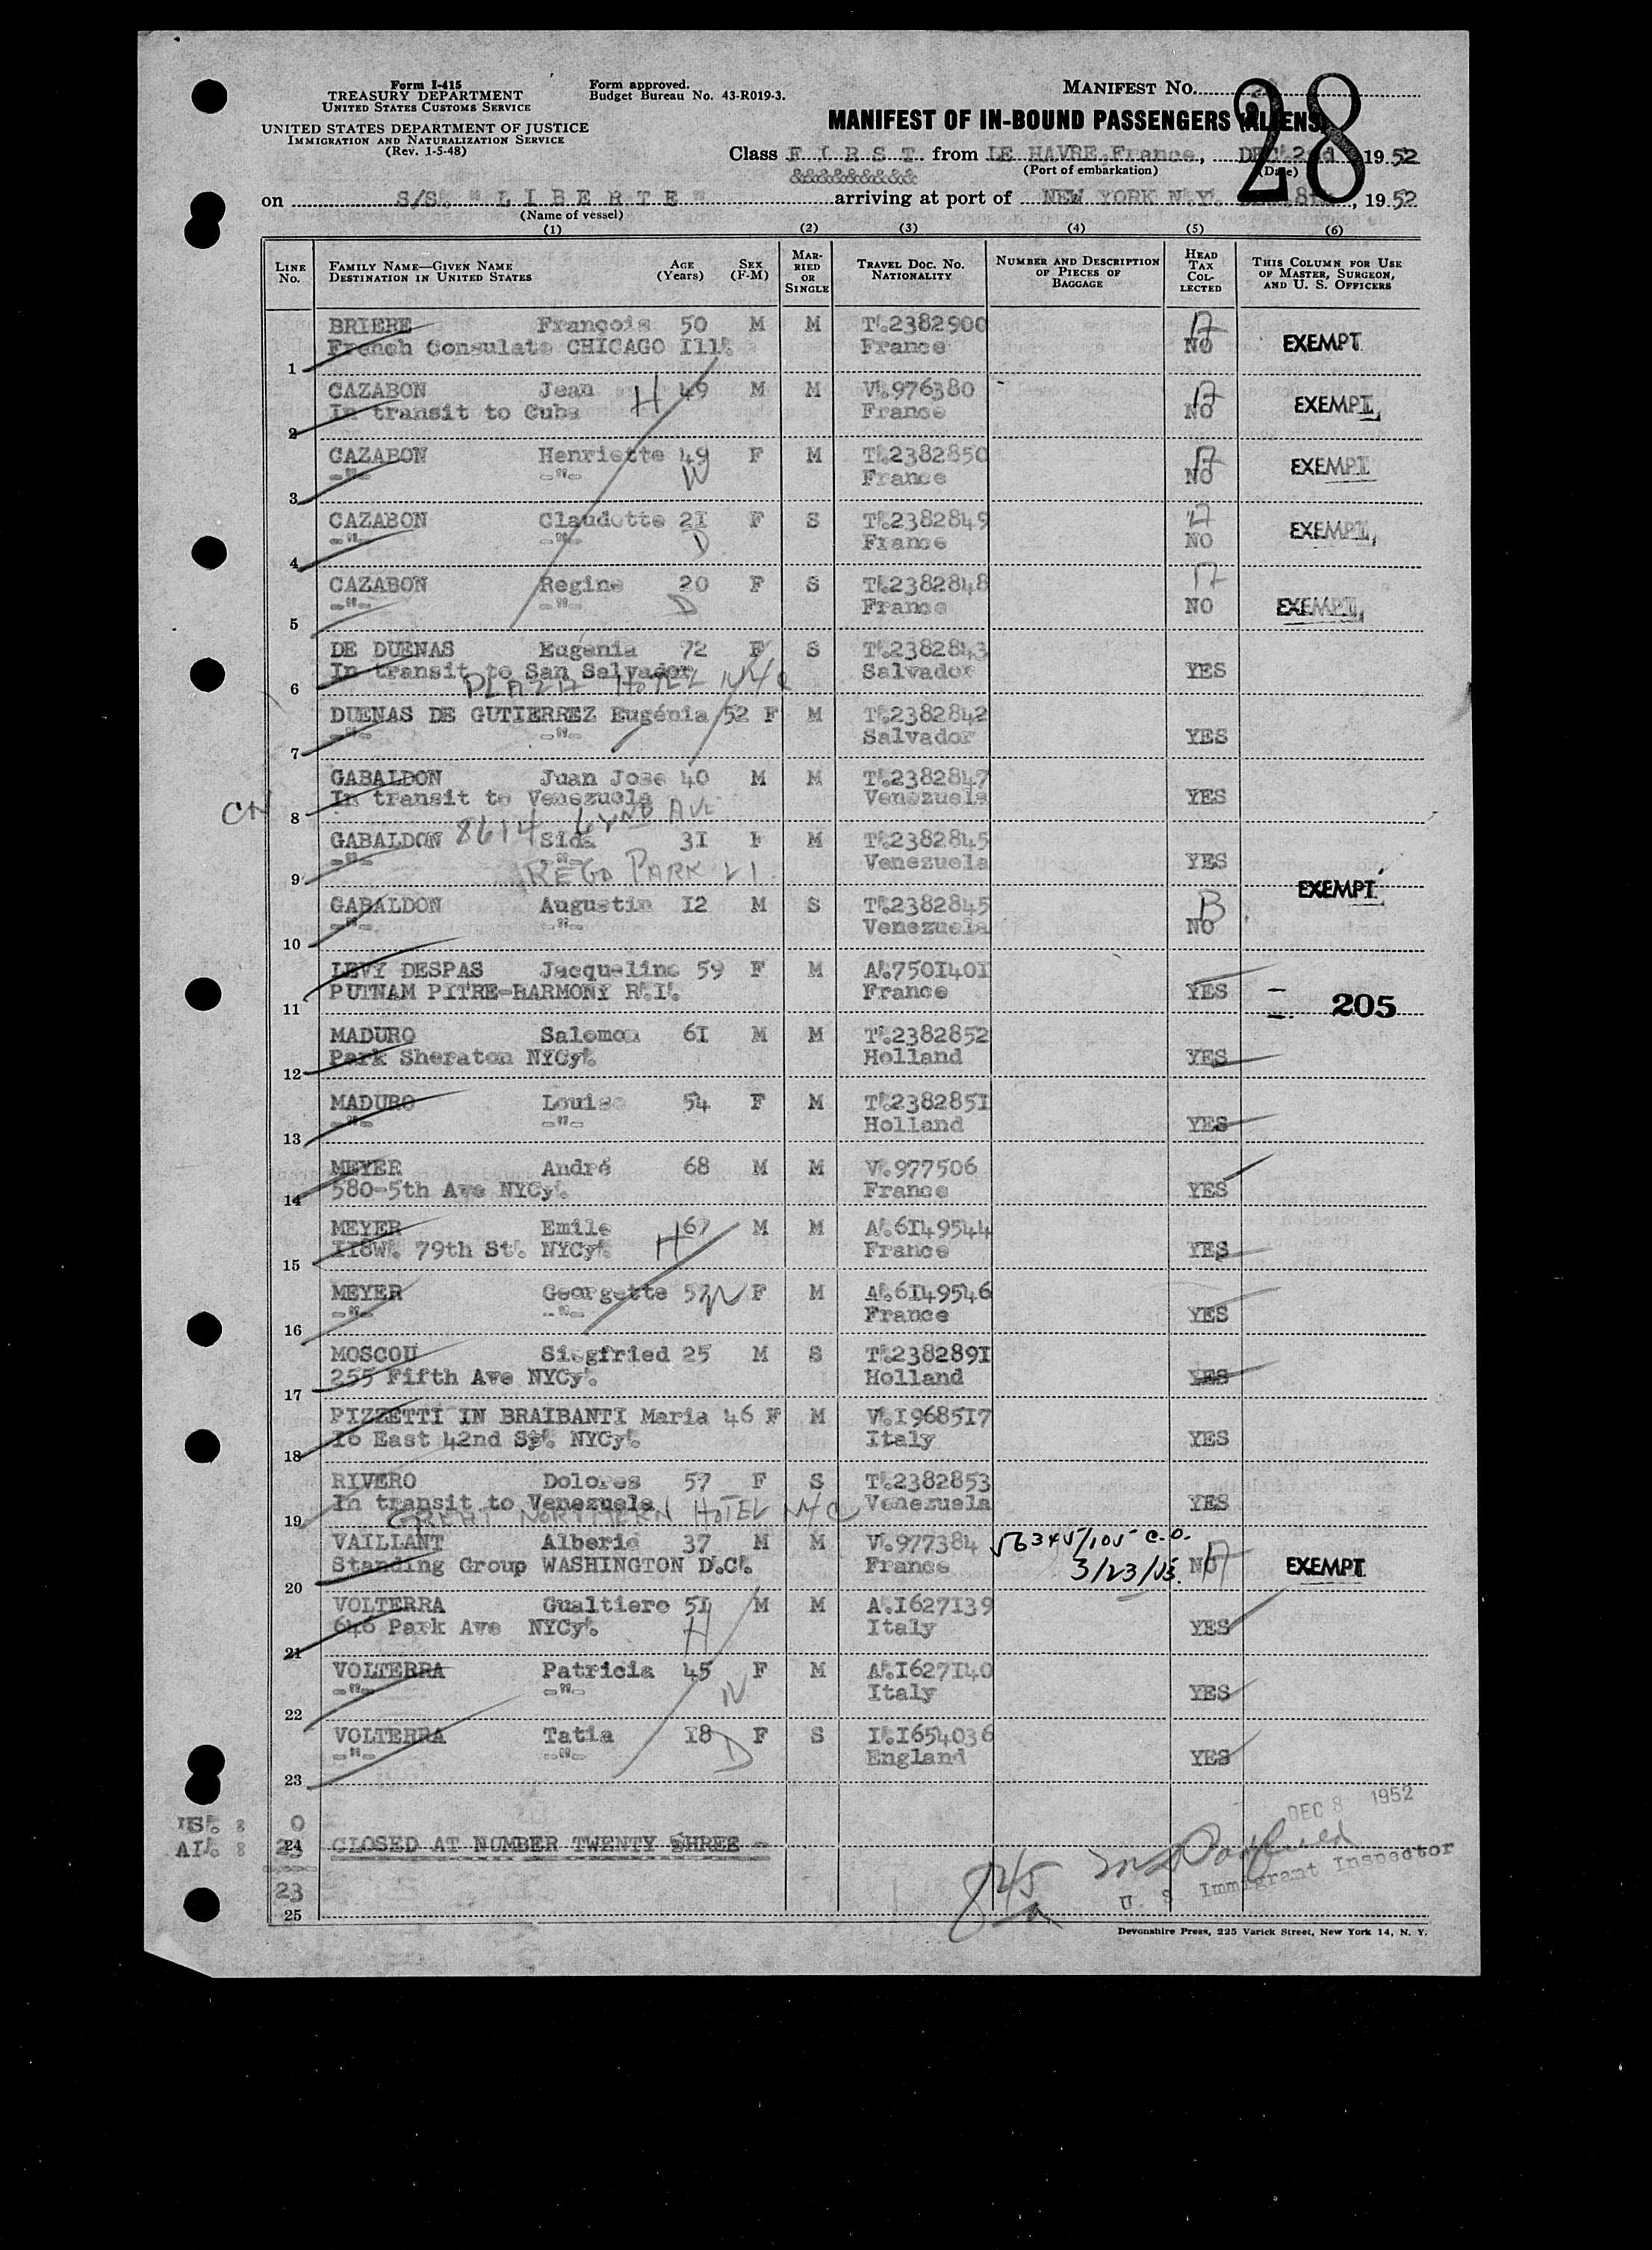 Form I-415
TREASURY DEPARTMENT
UNITED STATES CUSTOMS SERVICE
UNITED STATES DEPARTMENT OF JUSTICE
IMMIGRATION AND NATURALIZATION SERVICE
(Rev. 1-5-48)
Form approved.
Budget Bureau No. 43-R019-3.
MANIFEST NO.
28
MANIFEST OF IN-BOUND PASSENGERS (ALIENS)
Class F I R S T from LE HAVRE,France, DEC.2nd 1952
(Port of embarkation) (Date)
&&&&&&&&&&
on S/S. " L I B E R T E " arriving at port of NEW YORK N.Y. 8th, 1952
(Name of vessel)
(1) (2) (3) (4) (5) (6)
LINE NO. FAMILY NAME—GIVEN NAME DESTINATION IN UNITED STATES AGE (Years) SEX (F-M) MARRIED OR SINGLE TRAVEL DOC. NO. NATIONALITY NUMBER AND DESCRIPTION OF PIECES OF BAGGAGE HEAD TAX COLLECTED THIS COLUMN FOR USE OF MASTER, SURGEON, AND U. S. OFFICERS
BRIERE François 50 M M T.2382900
1 French Consulate CHICAGO Ill. France NO EXEMPT
CAZABON Jean H 49 M M V.976380
2 In transit to Cuba France NO EXEMPT
CAZABON Henriette 49 F M T.2382850
3 -"- -"- W France NO EXEMPT
CAZABON Claudette 21 F S T.2382849
4 -"- -"- D France NO EXEMPT
CAZABON Regine 20 F S T.2382848
5 -"- -"- D France NO EXEMPT
DE DUENAS Eugénia 72 F S T.2382843
6 In transit to San Salvador Salvador YES
PLAZA HOTEL NYC
DUENAS DE GUTIERREZ Eugénia 52 F M T.2382842
7 -"- -"- Salvador YES
GABALDON Juan Jose 40 M M T.2382847
8 In transit to Venezuela Venezuela YES
CN
8614 62ND AVE
GABALDON Sida 31 F M T.2382845
9 -"- -"- Venezuela YES
REGO PARK LI.
GABALDON Augustin 12 M S T.2382845 B EXEMPT
10 -"- -"- Venezuela NO
LEVY DESPAS Jacqueline 59 F M A.7501401
11 PUTNAM PITRE-HARMONY R.I. France YES 205
MADURO Salomon 61 M M T.2382852
12 Park Sheraton NYCy. Holland YES
MADURO Louise 54 F M T.2382851
13 -"- -"- Holland YES
MEYER André 68 M M V.977506
14 580-5th Ave NYCy. France YES
MEYER Emile H 67 M M A.6149544
15 118W. 79th St. NYCy. France YES
MEYER Georgette 57 W F M A.6149546
16 -"- -"- France YES
MOSCOU Siegfried 25 M S T.2382891
17 255 Fifth Ave NYCy. Holland YES
PIZZETTI IN BRAIBANTI Maria 46 F M V.1968517
18 16 East 42nd St. NYCy. Italy YES
RIVERO Dolores 57 F S T.2382853
19 In transit to Venezuela Venezuela YES
GREAT NORTHERN HOTEL NYC
VAILLANT Alberic 37 M M V.977384 56345/105 C.O.
20 Standing Group WASHINGTON D.C. France 3/23/53. NO EXEMPT
VOLTERRA Gualtiero 51 M M A.1627139
21 646 Park Ave NYCy. H Italy YES
VOLTERRA Patricia 45 F M A.1627140
22 -"- -"- W Italy YES
VOLTERRA Tatia 18 F S I.1654036
23 -"- -"- D England YES
DEC 8 1952
US. : 0
AL. : 23
24 CLOSED AT NUMBER TWENTY THREE -
23
25
845
U. S Immigrant Inspector
Devonshire Press, 225 Varick Street, New York 14, N. Y.